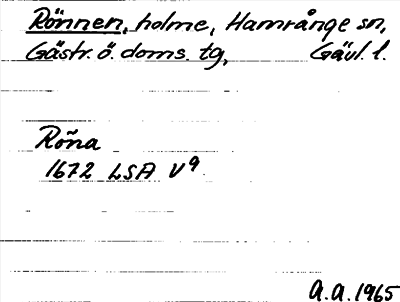 Rönnen, holme, Hamrånge sn,
Gästr. ö. doms. tg, Gävl. l.
Röna
1672 LSA V9
A.A. 1965